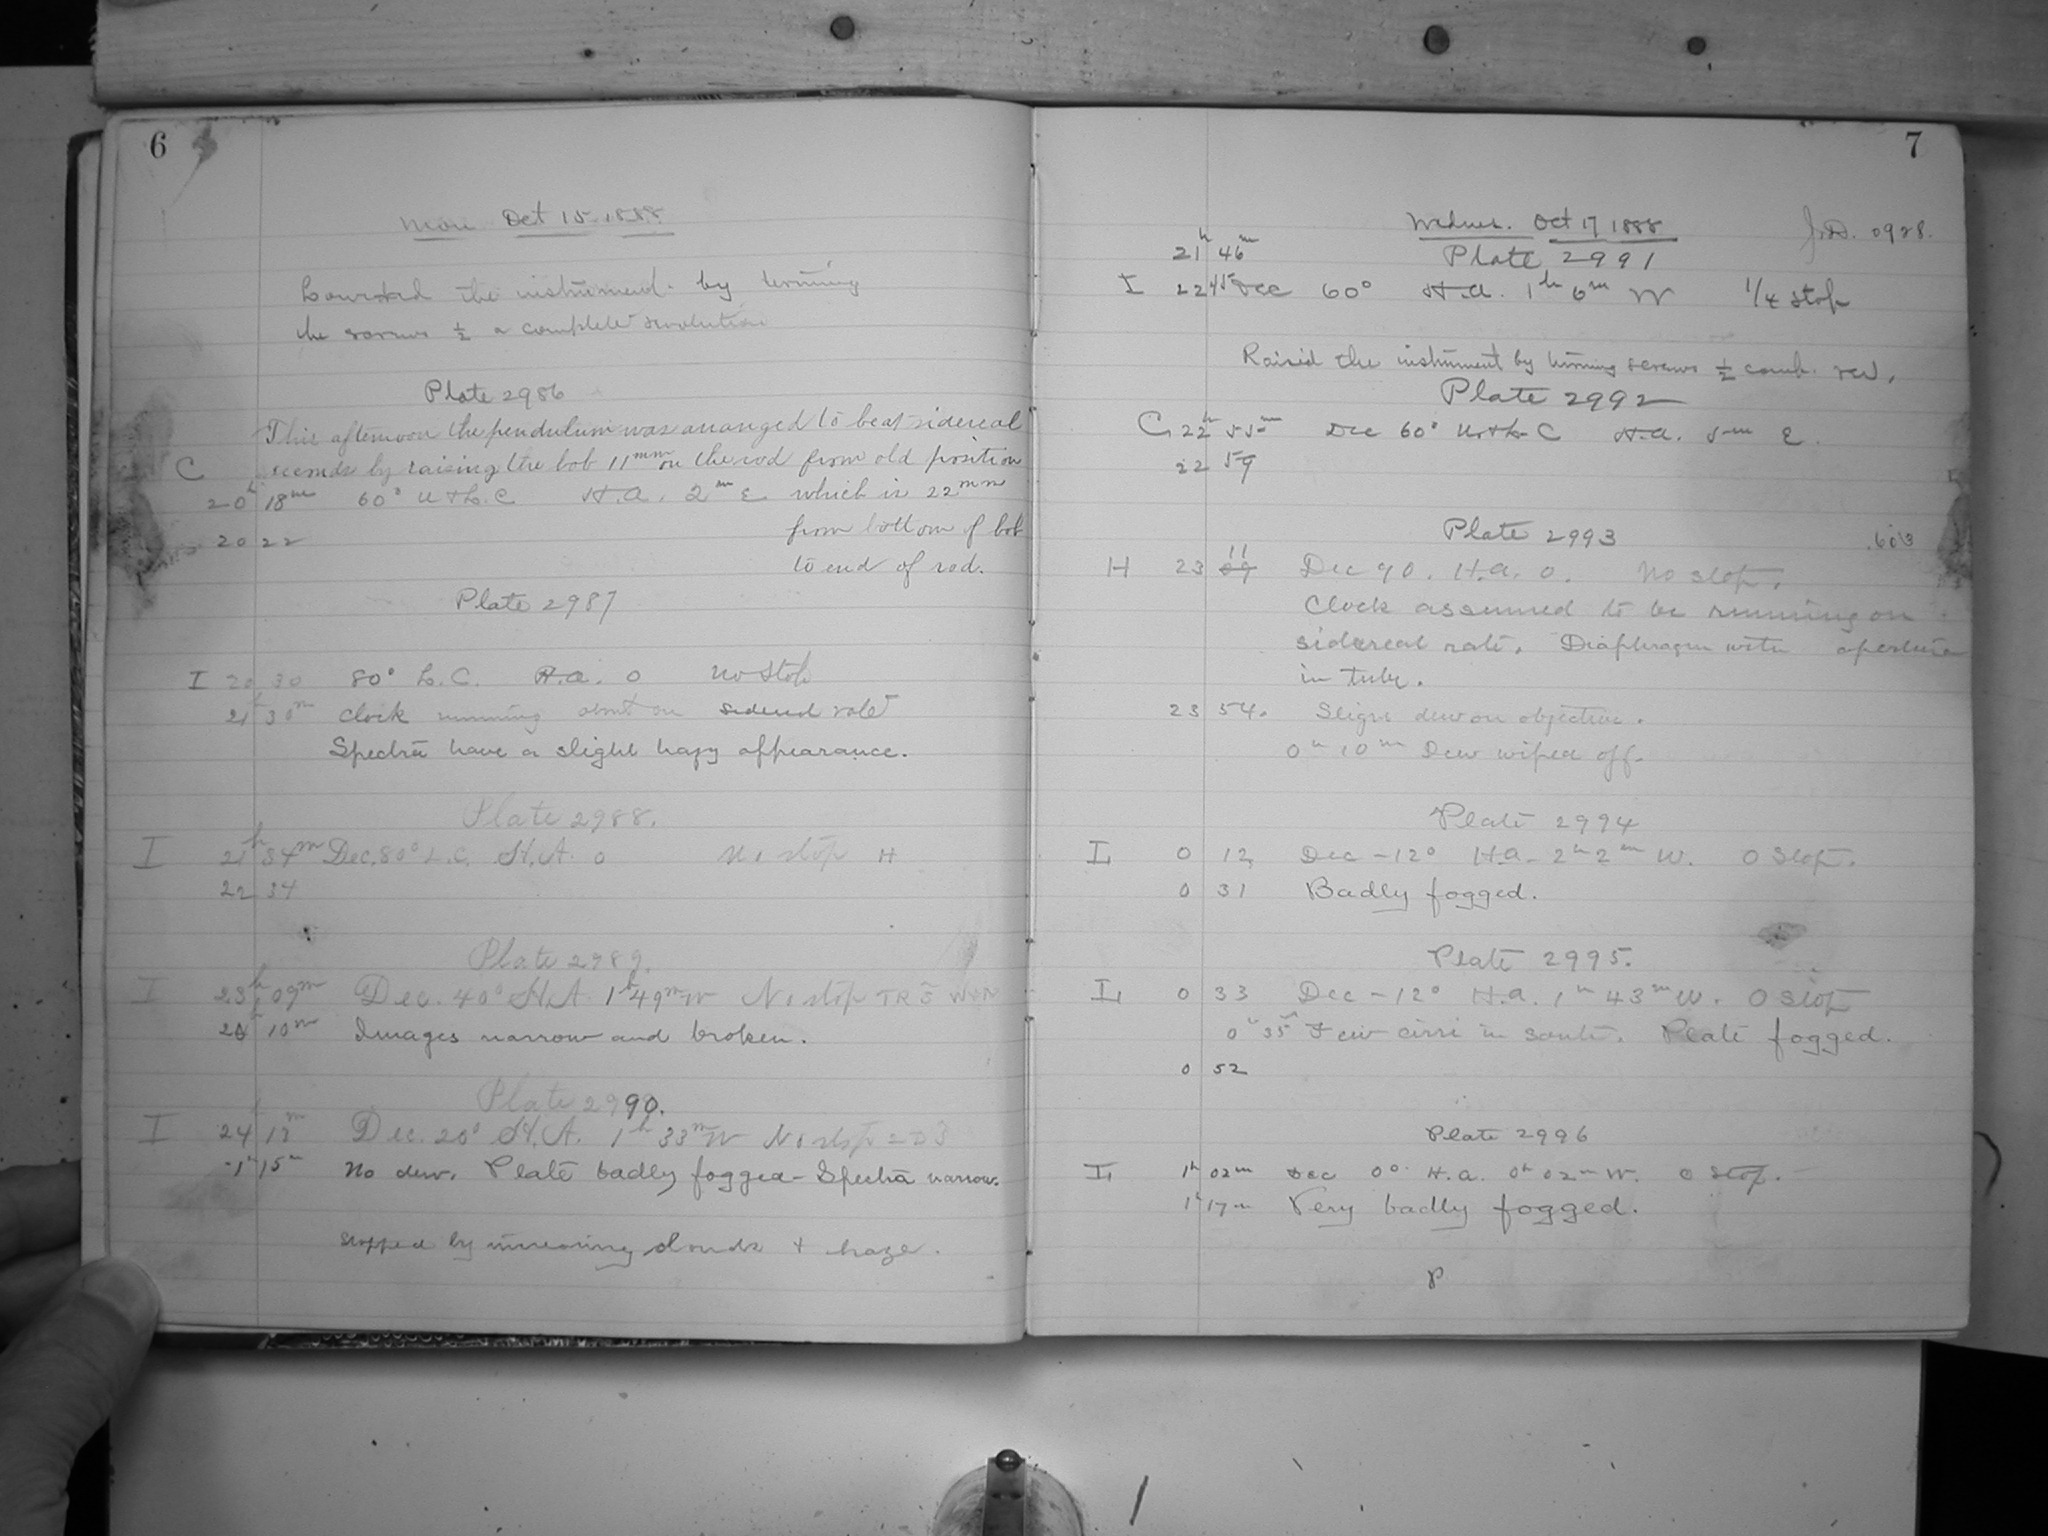 6
Mon Oct 15 1888
Lowered the instrument by turning
the screws ½ a complete revolution
Plate 2986
This afternoon the pendulum was arranged to beat sidereal
C seconds by raising the bob 11mm on the rod from old position
20h 18m 60° U+L.C H.A. 2m E which is 22mm
from bottom of bob
20 22
to end of rod.
Plate 2987
I 20 30 80° L.C. H.a. 0 No Stop
21h 30m Clock running about on sidereal rate
Spectra have a slight hazy appearance.
Plate 2988.
I 21h 34m Dec. 80° L.C. H.A. 0 No stop H
22 34
Plate 2989.
I 23h 09m Dec. 40° H.A. 1h 49m W No stop
24h 10m Images narrow and broken.
Plate 2990.
I 24h 13m Dec. 20° H.A. 1h 33m W No stop
1h 15m No dew. Plate badly fogged - Spectra narrow.
Stopped by increasing clouds + haze.
7
Wednes. Oct 17 1888 J.D. 0928.
21h 46m Plate 2991
I 22 45 Dec 60° H.a. 1h 6m W 1/4 stop
Raised the instrument by turning screws ½ comp. rev.
Plate 2992
C 22h 55m Dec 60° U+L C H.a. 5m E.
22 59
Plate 2993
11
H 23 09 Dec 90. H.a. 0. No stop.
Clock assumed to be running on
sidereal rate. Diaphragm with aperture
in tube.
23 54. Slight dew on objective.
0h 10m Dew wiped off.
Plate 2994
I 0 12 Dec -12° H.a. 2h 2m W. 0 Stop.
0 31 Badly fogged.
Plate 2995.
I 0 33 Dec -12° H.a. 1h 43m W. 0 Stop
0h 35 Few cirri in south. Plate fogged.
0 52
Plate 2996
I 1h 02m Dec 0° H.a. 0h 02m W. 0 Stop.
1h 17m Very badly fogged.
P